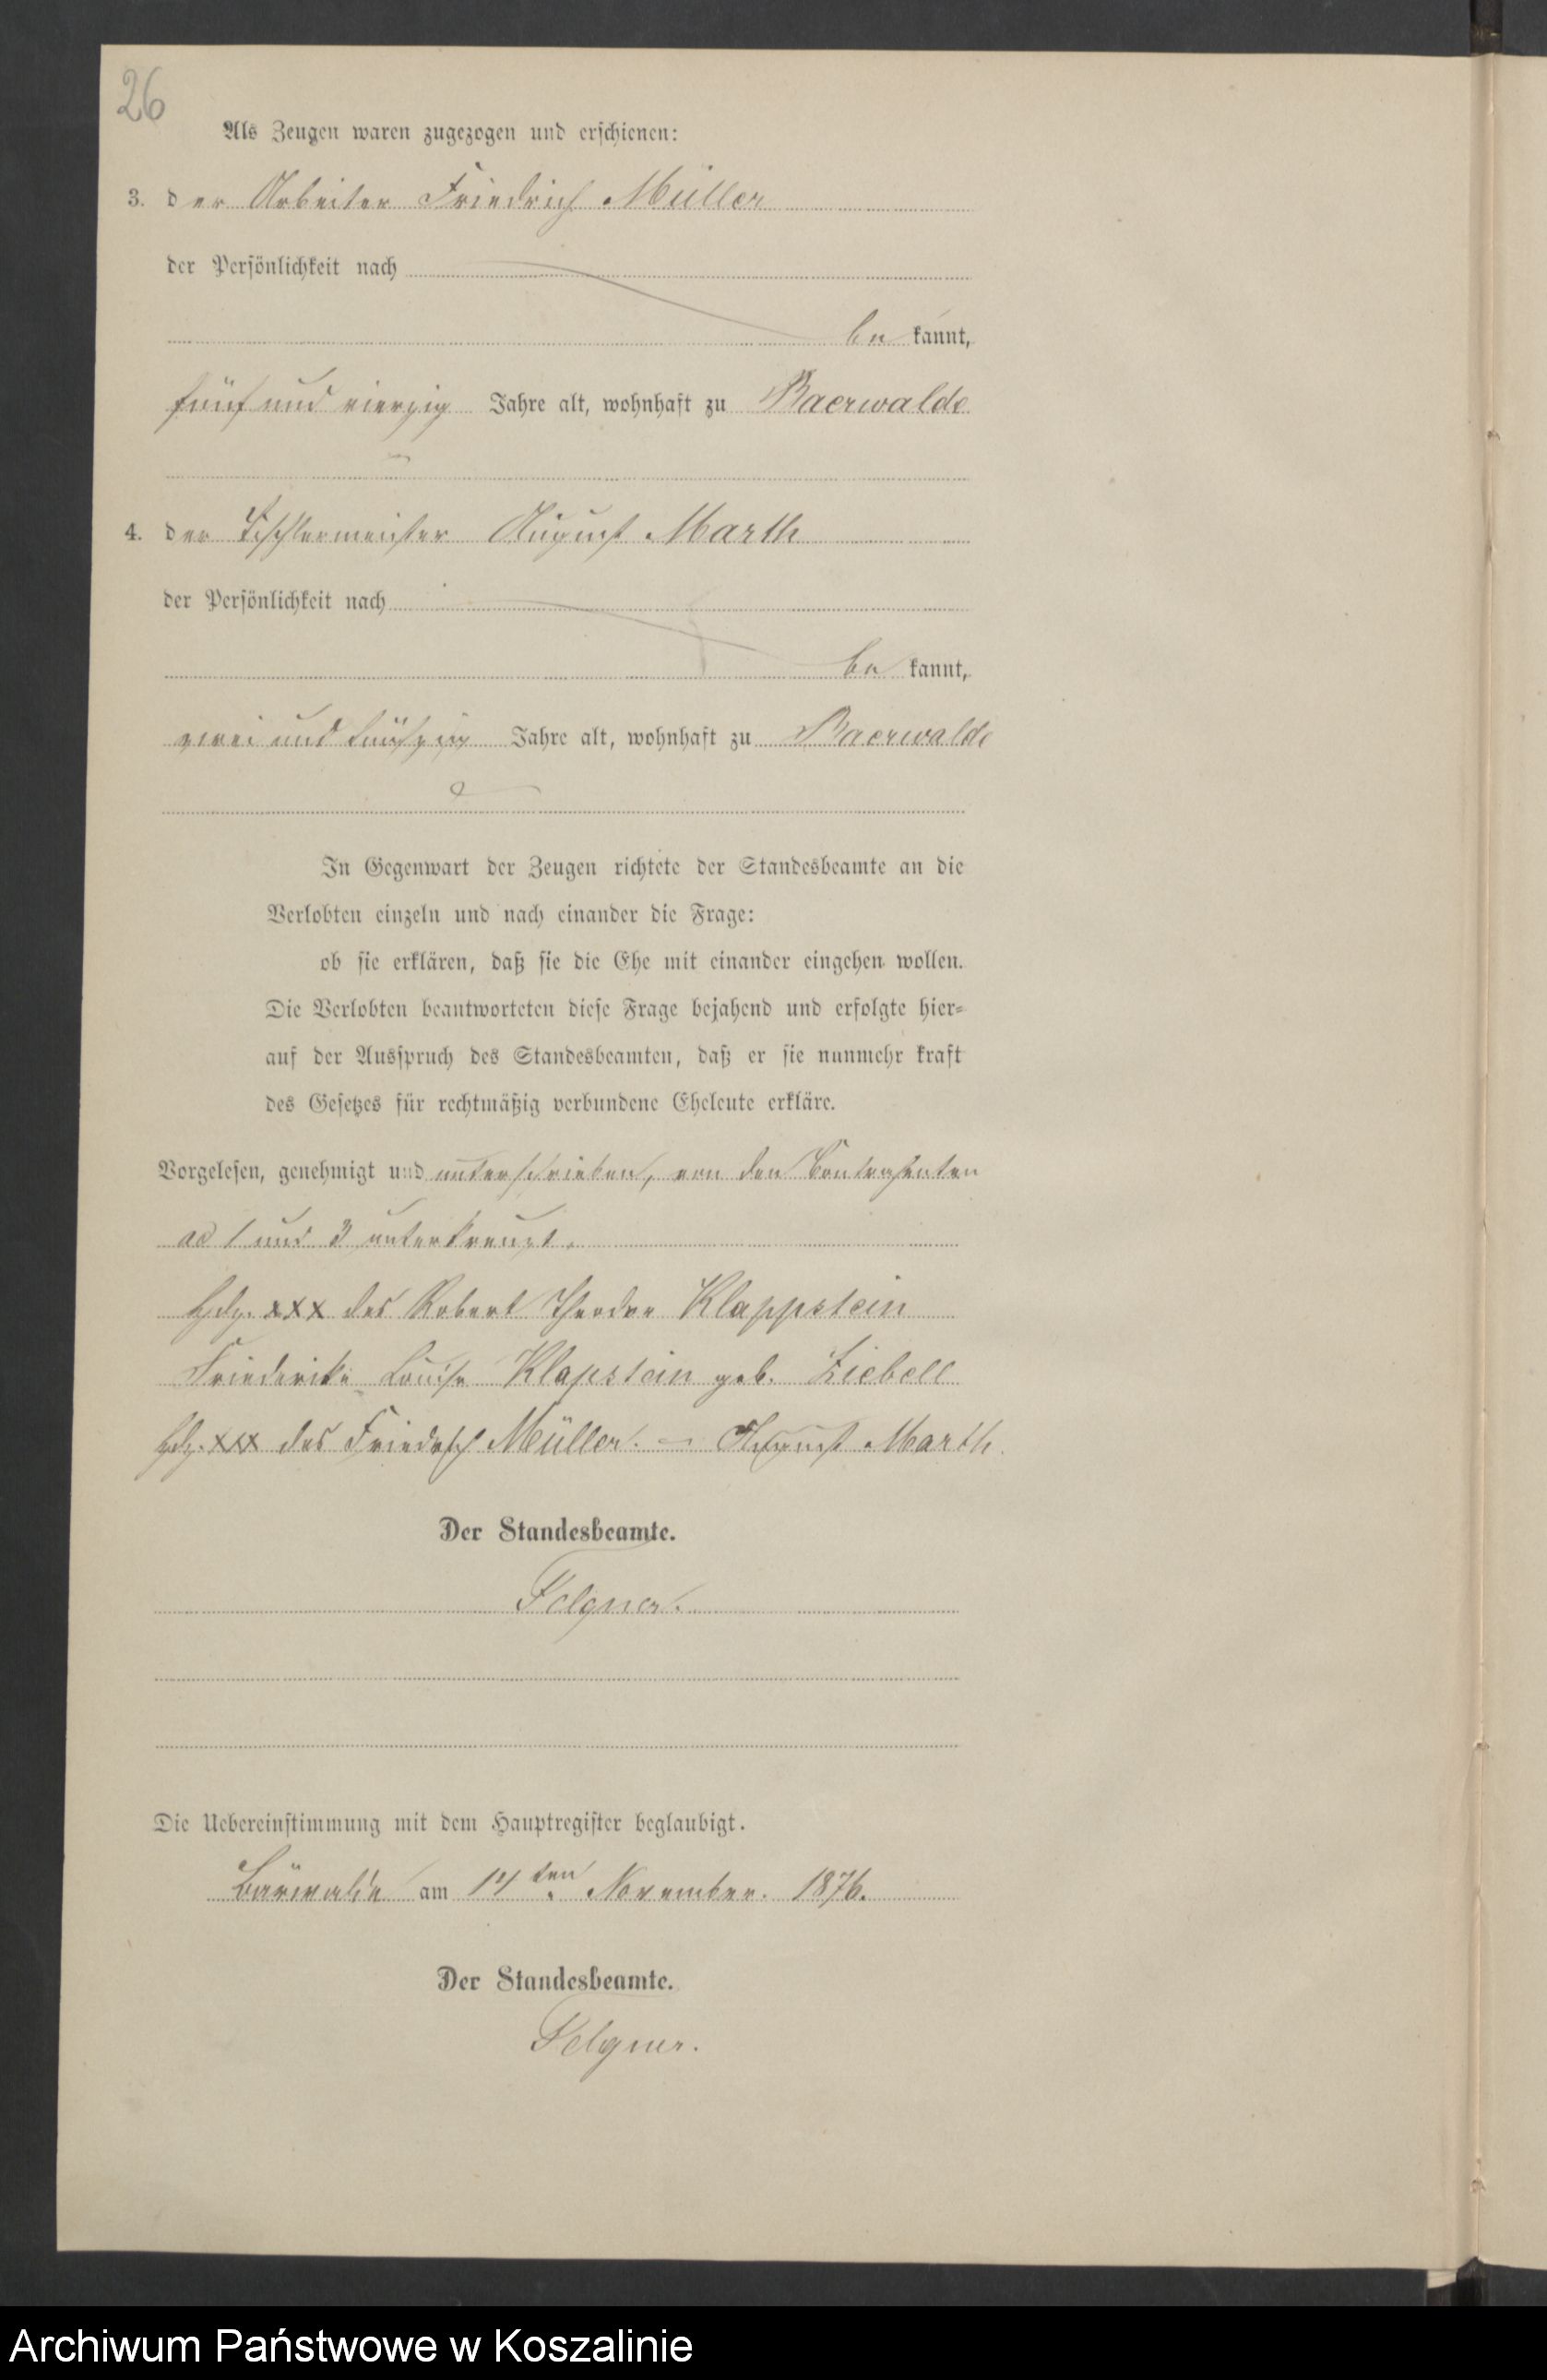 26
Als Zeugen waren zugezogen und erschienen:
3. der Arbeiter Friedrich Müller
der Persönlichkeit nach
be kannt,
fünf und vierzig Jahre alt, wohnhaft zu Baerwalde
4. der Tischlermeister August Marth
der Persönlichkeit nach
be kannt,
zwei und fünfzig Jahre alt, wohnhaft zu Baerwalde
In Gegenwart der Zeugen richtete der Standesbeamte an die
Verlobten einzeln und nach einander die Frage:
ob sie erklären, daß sie die Ehe mit einander eingehen wollen.
Die Verlobten beantworteten diese Frage bejahend und erfolgte hier=
auf der Ausspruch des Standesbeamten, daß er sie nunmehr kraft
des Gesetzes für rechtmäßig verbundene Eheleute erkläre.
Vorgelesen, genehmigt und unterschrieben, von den Contrahenten
ad 1 und 3 unterkreuzt.
Hdz. xxx des Robert Theodor Klappstein
Friederike Louise Klapstein geb. Ziebell
Hdz. xxx des Friedrich Müller. – August Marth.
Der Standesbeamte.
Felgner.
Die Uebereinstimmung mit dem Hauptregister beglaubigt.
Bärwalde am 14ten November. 1876.
Der Standesbeamte.
Felgner.
Archiwum Państwowe w Koszalinie